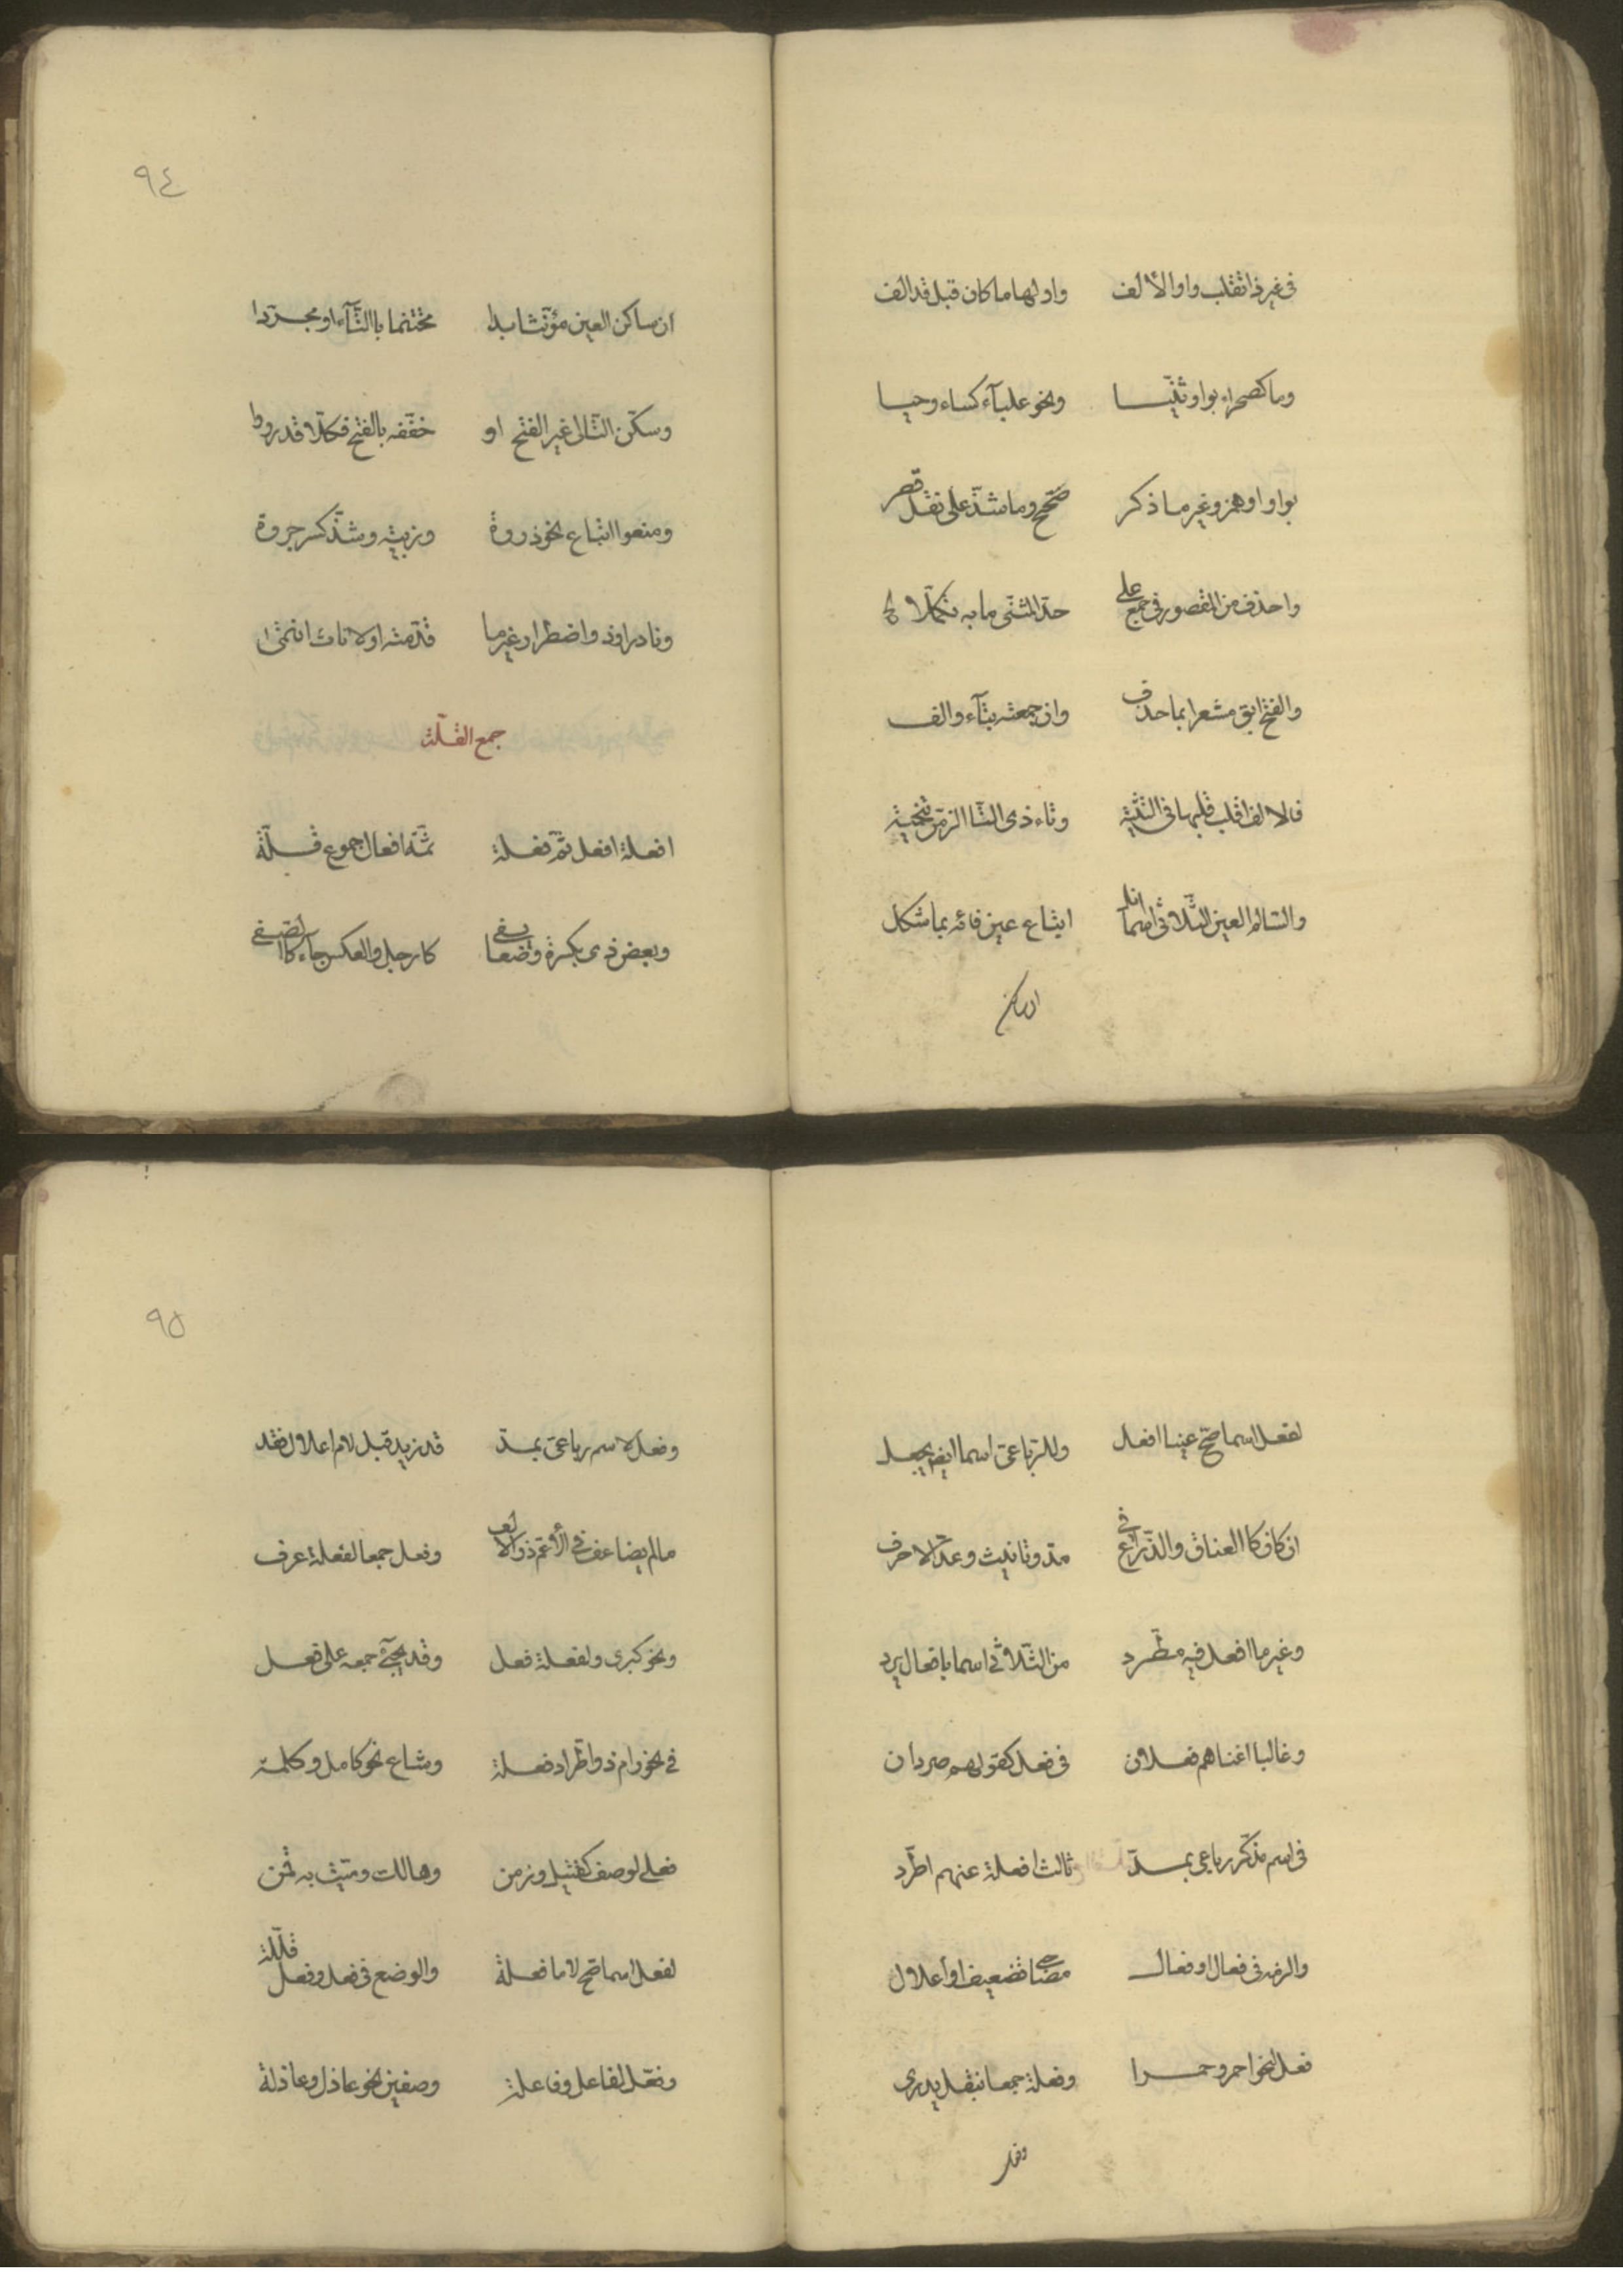 فى غير ذا تقلب واوا الالف وا ولها ما كان قبل قد الف
وما كصحراء بواو ثنّيا ونحو علباء كساء وحيا
بواو او همز وغير ما ذكر صحّح وما شذّ على نقل قصر
واحذف من المقصور فى جمع على حدّ المثنّى ما به تكمّلا
والفتح ابق مشعرا بما حذف وان جمعته بتآء والف
فالالف اقلب قلبها فى التثنية وتاء ذى التّا الزمنّ تنحية
والسّالم العين الثّلاثى اسما انل اتباع عين فائه بما شكل
ان ساكن
٩٤
ان ساكن العين مؤنّثا بدا مختتما باالتّآء او مجرّدا
وسكّن التّالى غير الفتح او خفّفه بالفتح فكلّا قد رووا
ومنعوا اتباع نحو ذروة وزبية وشذّ كسر جروة
ونادر او ذو اضطرار غير ما قدّمته او لاناث انتمى
جمع القلّة
افعلة افعل ثمّ فعلة ثمّة افعال جموع قلّة
وبعض ذى بكثرة وضعا يفى كارجل والعكس جآء كاالصّفى
لفعل اسما صحّ عينا افعل وللرّباعىّ اسما ايضا يجعل
ان كان كاالعناق والذّراع فى مدّ وتانيث وعدّ الاحرف
وغير ما افعل فيه مطّرد من الثّلاثى اسما بافعال يرد
وغالبا اغناهم فعلان فى فعل كقولهم صردان
فى اسم مذكّر رباعى بمدّ ثالث افعلة عنهم اطّرد
والزمه فى فعال او فعال مصاحبى تضعيف او اعلال
فعل لنحو احمر وحمرا وفعلة جمعا بنقل يدرى
وفعل
٩٥
وفعل لاسم رباعىّ بمدّ قد زيد قبل لام اعلال فقد
مالم يضاعف فى الأعمّ ذو الالف وفعل جمعا لفعلة عرف
ونحو كبرى ولفعلة فعل وقد يجىء جمعه على فعل
فى نحو رام ذو اطّراد فعلة وشاع نحو كامل وكملة
فعلى لوصف كقتيل وزمن وهالك وميّت به قمن
لفعل اسما صحّ لاما فعلة والوضع فى فعل وفعل قلّلة
وفعّل لفاعل وفاعلة وصفين نحو عاذل وعاذلة